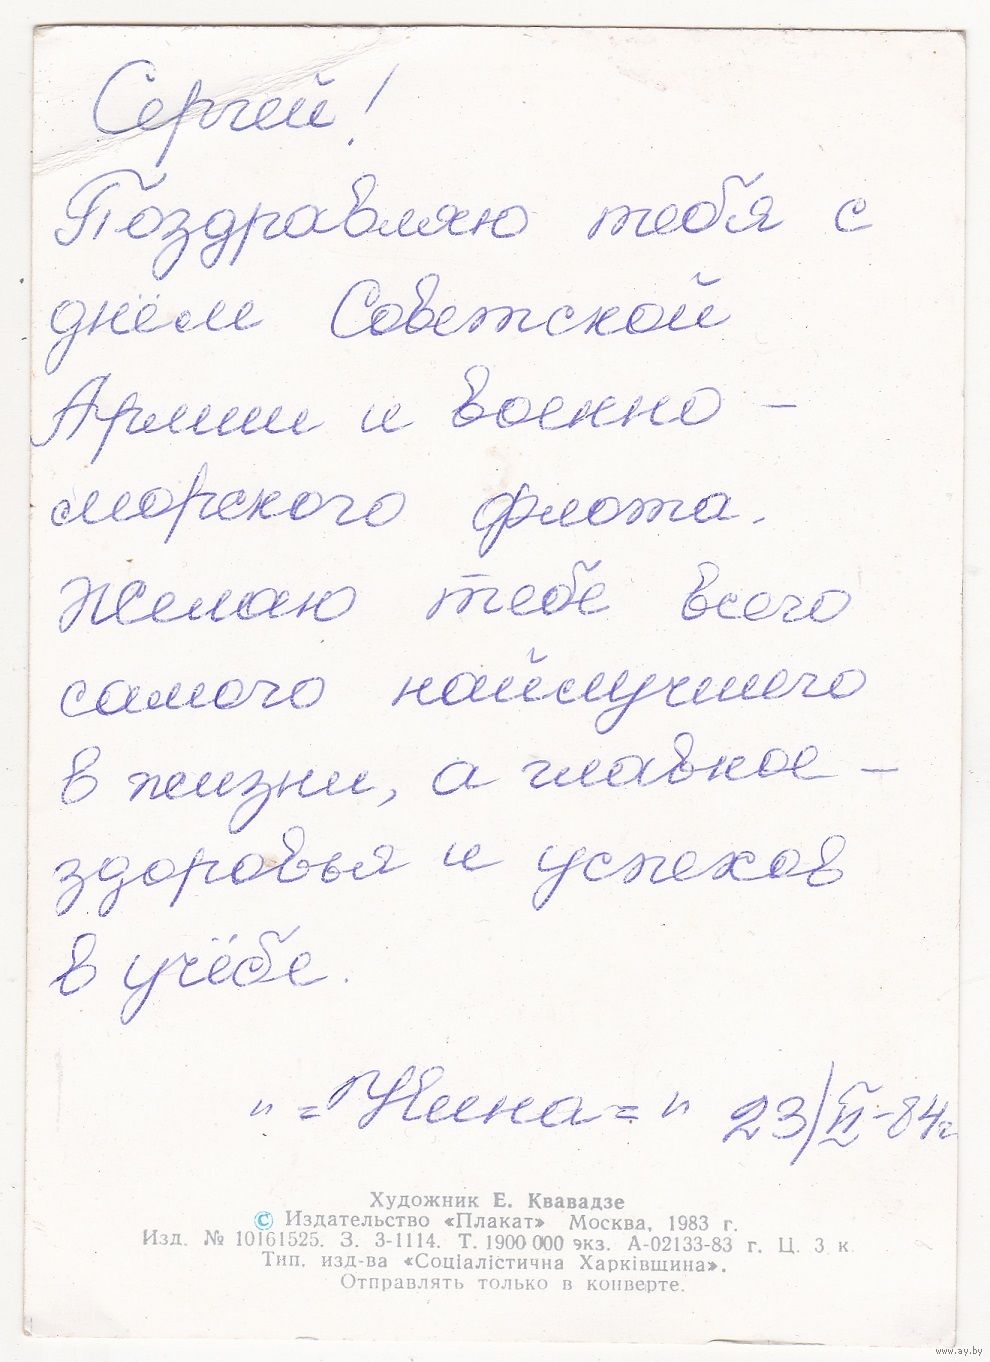 Сергей!
Поздравляю тебя с
днём Советской
Армии и военно -
морского флота.
Желаю тебе всего
самого найлучшего
в жизни, а главное -
здоровья и успехов
в учёбе.
" = Нина = " 23/II-84г
Художник Е. Квавадзе
© Издательство «Плакат» Москва, 1983 г.
Изд. № 10161525. З. 3-1114. Т. 1900 000 экз. А-02133-83 г. Ц. 3 к
Тип. изд-ва «Соціалістична Харківщина».
Отправлять только в конверте.
www.ay.by